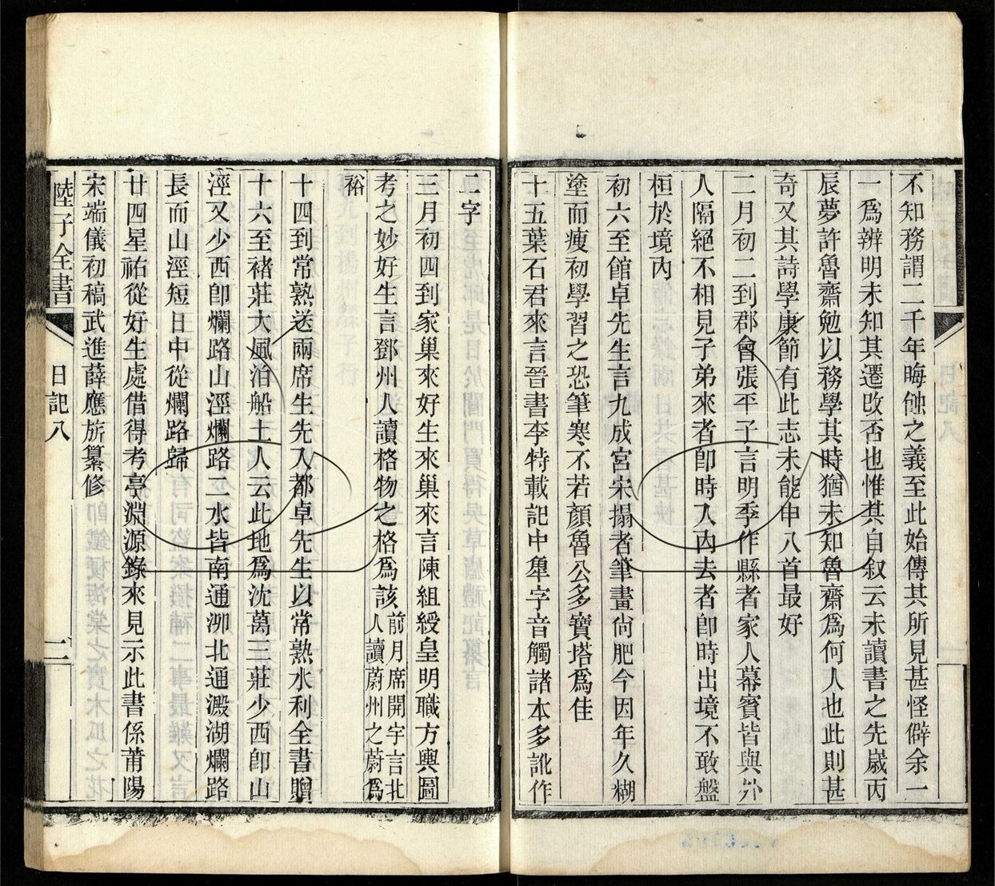 不知務謂二千年晦蝕之義至此始傳其所見甚怪僻余一
一爲辨明未知其遷改否也惟其自叙云未讀書之先嵗丙
辰夢許魯齋勉以務學其時猶未知魯齋爲何人也此則甚
奇又其詩學康節有此志未能申八首最好
二月初二到郡會張平子言明季作縣者家人幕賓皆與外
人隔絕不相見子弟來者卽時入內去者卽時出境不敢盤
桓於境內
初六至館卓先生言九成宮宋搨者筆畫尙肥今因年久糊
塗而瘦初學習之恐筆寒不若顔魯公多寶塔爲佳
十五葉石君來言晉書李特載記中犨字音觸諸本多訛作
二字
三月初四到家巢來好生來巢來言陳組綬皇明職方輿圖
考之妙好生言鄧州人讀格物之格爲該前月席開宇言北人讀蔚州之蔚爲
裕
十四到常熟送兩席生先入都卓先生以常熟水利全書贈
十六至褚莊大風泊船土人云此地爲沈萬三莊少西卽山
涇又少西卽爛路山涇爛路二水皆南通泖北通澱湖爛路
長而山涇短日中從爛路歸
廿四星祐從好生處借得考亭淵源錄來見示此書係莆陽
宋端儀初稿武進薛應旂纂修
陸子全書
日記八
二